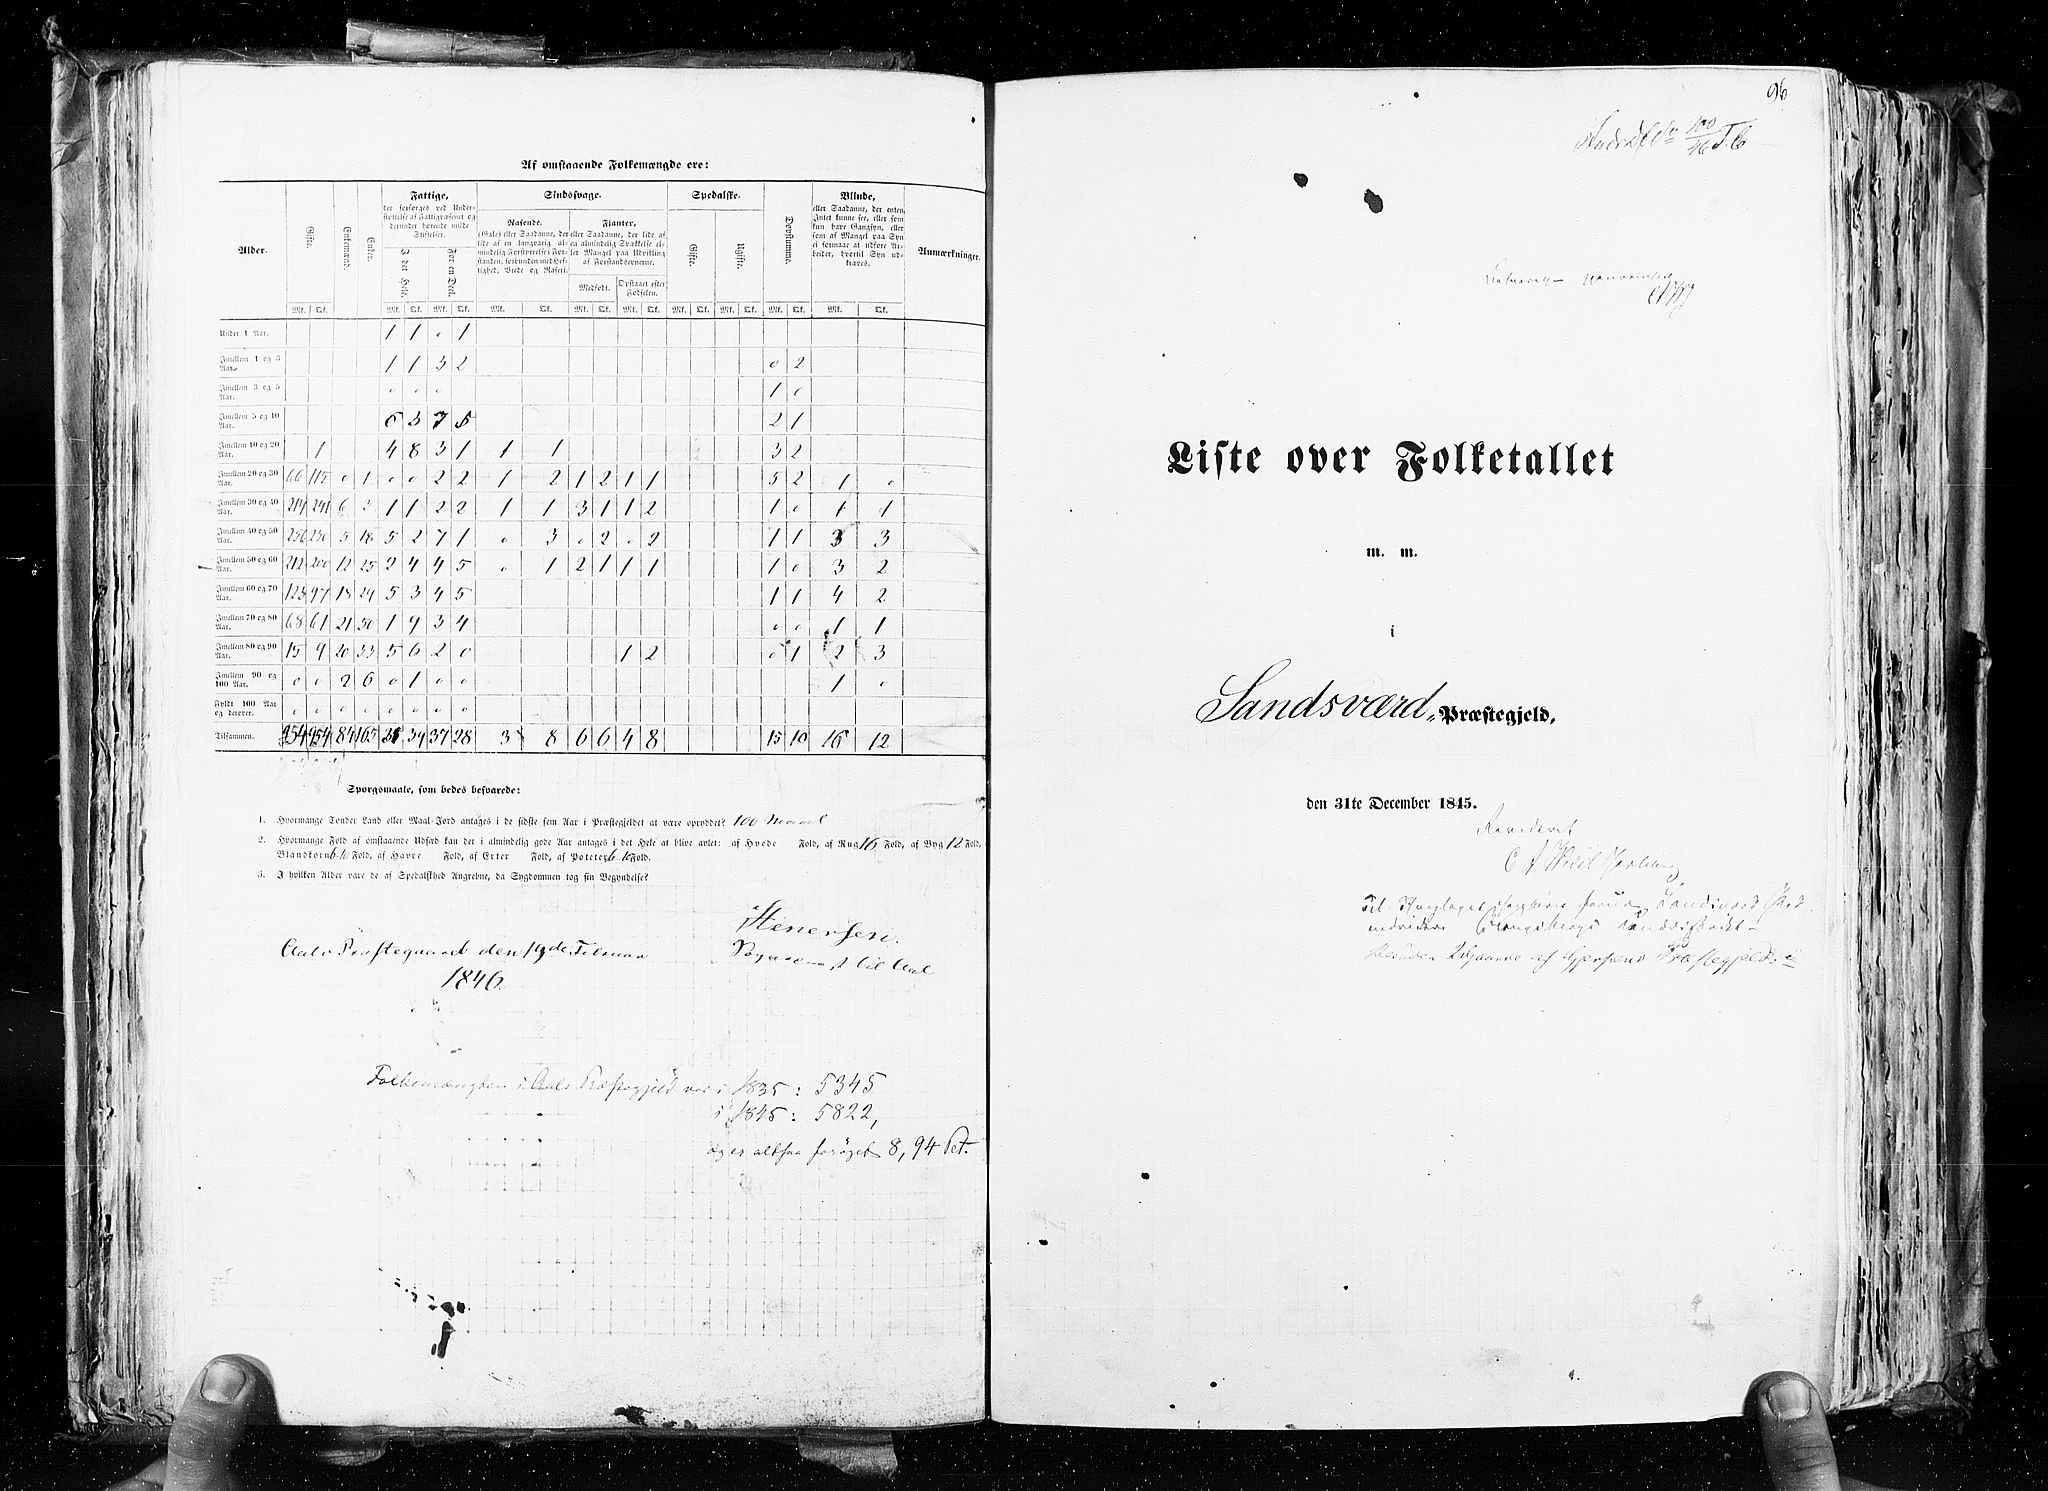 Af omstaaende Folkemængde ere:
Alder. Gifte. Enkemænd. Enker. Fattige, Sindssvage. Spedalske. Døvstumme. Blinde, Anmærkninger.
der forsørges ved Understøttelse af Fattigvæsenet og derunder hørende milde Stiftelser.
I det Hele. For en Deel.
Rasende.
(Gale) eller Saadanne, der lide af en langvarig almindelig Forstyrrelse i Forstanden, forbunden med Heftighed, Vrede og Raseri.
Fjanter,
eller Saadanne, der lide af en almindelig Svækkelse eller Mangel paa Udvikling af Forstandsevnerne.
Medfødt. Opstaaet efter Fødselen.
Gifte. Ugifte.
eller Saadanne, der enten Intet kunne see, eller som kun have Gangsyn, eller som af Mangel paa Syn ei formaae at udføre Arbeider, hvortil Syn udkræves.
Mk. Qk. Mk. Qk. Mk. Qk. Mk. Qk. Mk. Qk. Mk. Qk. Mk. Qk. Mk. Qk. Mk. Qk. Mk. Qk.
Under 1 Aar. 1 1 0 1
Imellem 1 og 3 Aar. 1 1 3 2 0 2
Imellem 3 og 5 Aar. 0 0 0 1 0
Imellem 5 og 10 Aar. 6 3 7 5 2 1
Imellem 10 og 20 Aar. 1 4 8 3 1 1 1 3 2
Imellem 20 og 30 Aar. 66 115 0 1 0 0 2 2 1 2 1 2 1 1 5 2 1 0
Imellem 30 og 40 Aar. 214 241 6 3 1 1 2 2 1 1 3 1 1 2 1 0 1 1
Imellem 40 og 50 Aar. 256 230 5 18 5 2 7 1 0 3 0 2 0 2 1 1 3 3
Imellem 50 og 60 Aar. 212 200 12 25 2 4 4 5 0 1 2 1 1 1 1 0 3 2
Imellem 60 og 70 Aar. 123 97 18 29 5 3 4 5 1 1 4 2
Imellem 70 og 80 Aar. 68 61 21 50 1 9 3 4 0 0 1 1
Imellem 80 og 90 Aar. 15 9 20 33 5 6 2 0 1 2 0 1 2 3
Imellem 90 og 100 Aar. 0 0 2 6 0 1 0 0 1 0
Fyldt 100 Aar og derover. 0 0 0 0 0 0 0 0
Tilsammen. 954 954 84 165 31 39 37 28 3 8 6 6 4 8 15 10 16 12
Spørgsmaale, som bedes besvarede:
1. Hvormange Tønder Land eller Maal Jord antages i de sidste fem Aar i Præstegjeldet at være opryddet? 100 Maal
2. Hvormange Fold af omstaaende Udsæd kan der i almindelig gode Aar antages i det Hele at blive avlet: af Hvede Fold, af Rug 16 Fold, af Byg 12 Fold,
Blandkorn 6-10 Fold, af Havre Fold, af Erter Fold, af Poteter 6-10 Fold.
3. I hvilken Alder vare de af Spedalskhed Angrebne, da Sygdommen tog sin Begyndelse?
Stenersen.
Aals Præstegaard den 19de Februar
Sognepræst til Aal
1846.
Folkemængden i Aals Præstegjeld var i 1835: 5345
i 1845: 5822,
og er altsaa forøget 8,94 Pct.
96
100
46
Liste over Folketallet
m. m.
i
Sandsværd Præstegjeld,
den 31te December 1845.
Revideret
Præstegjeld